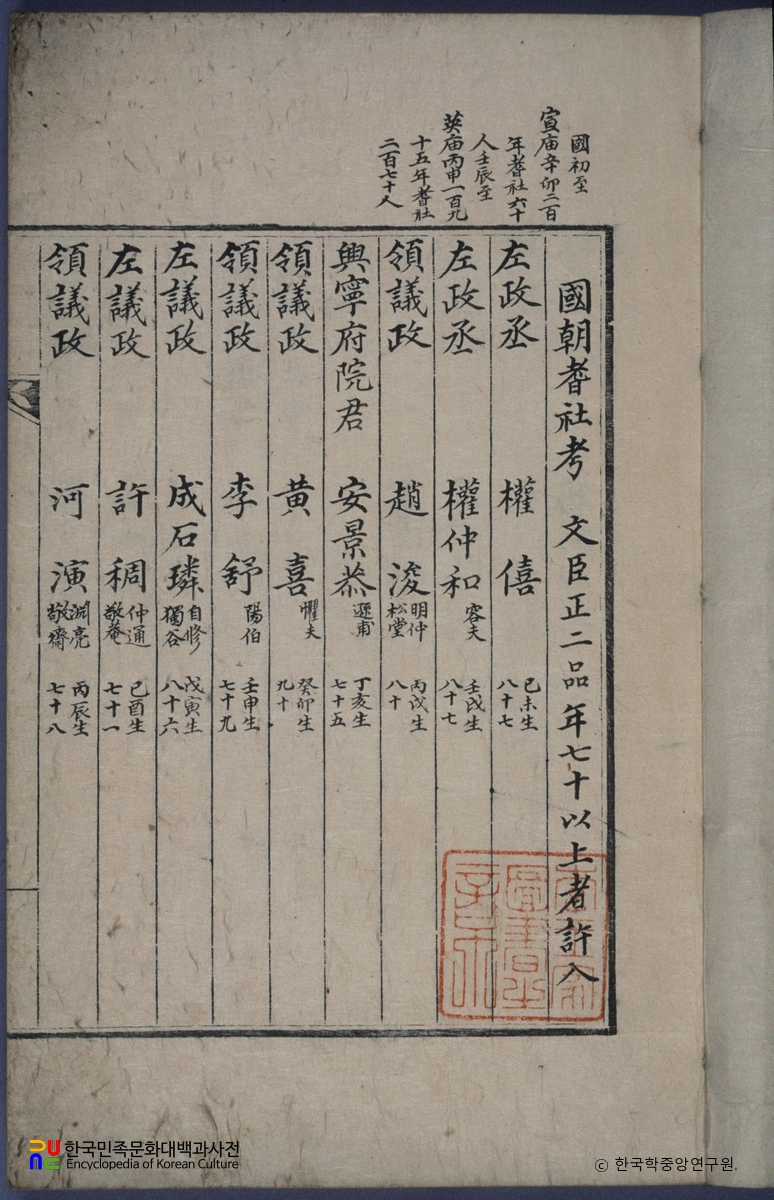 國初至
宣庙辛卯二百
年耆社六十
人壬辰至
英庙丙申一百九
十五年耆社
二百七十人
國朝耆社考 文臣正二品年七十以上者許入
左政丞 權僖 己未生 八十七
左政丞 權仲和 容夫 壬戌生 八十七
領議政 趙浚 明仲 松堂 丙戌生 八十
興寧府院君 安景恭 遜甫 丁亥生 七十五
領議政 黃喜 懼夫 癸卯生 九十
領議政 李舒 陽伯 壬申生 七十九
左議政 成石璘 自修 獨谷 戊寅生 八十六
左議政 許稠 仲通 敬菴 己酉生 七十一
領議政 河演 淵亮 敬齋 丙辰生 七十八
한국민족문화대백과사전
Encyclopedia of Korean Culture
© 한국학중앙연구원.